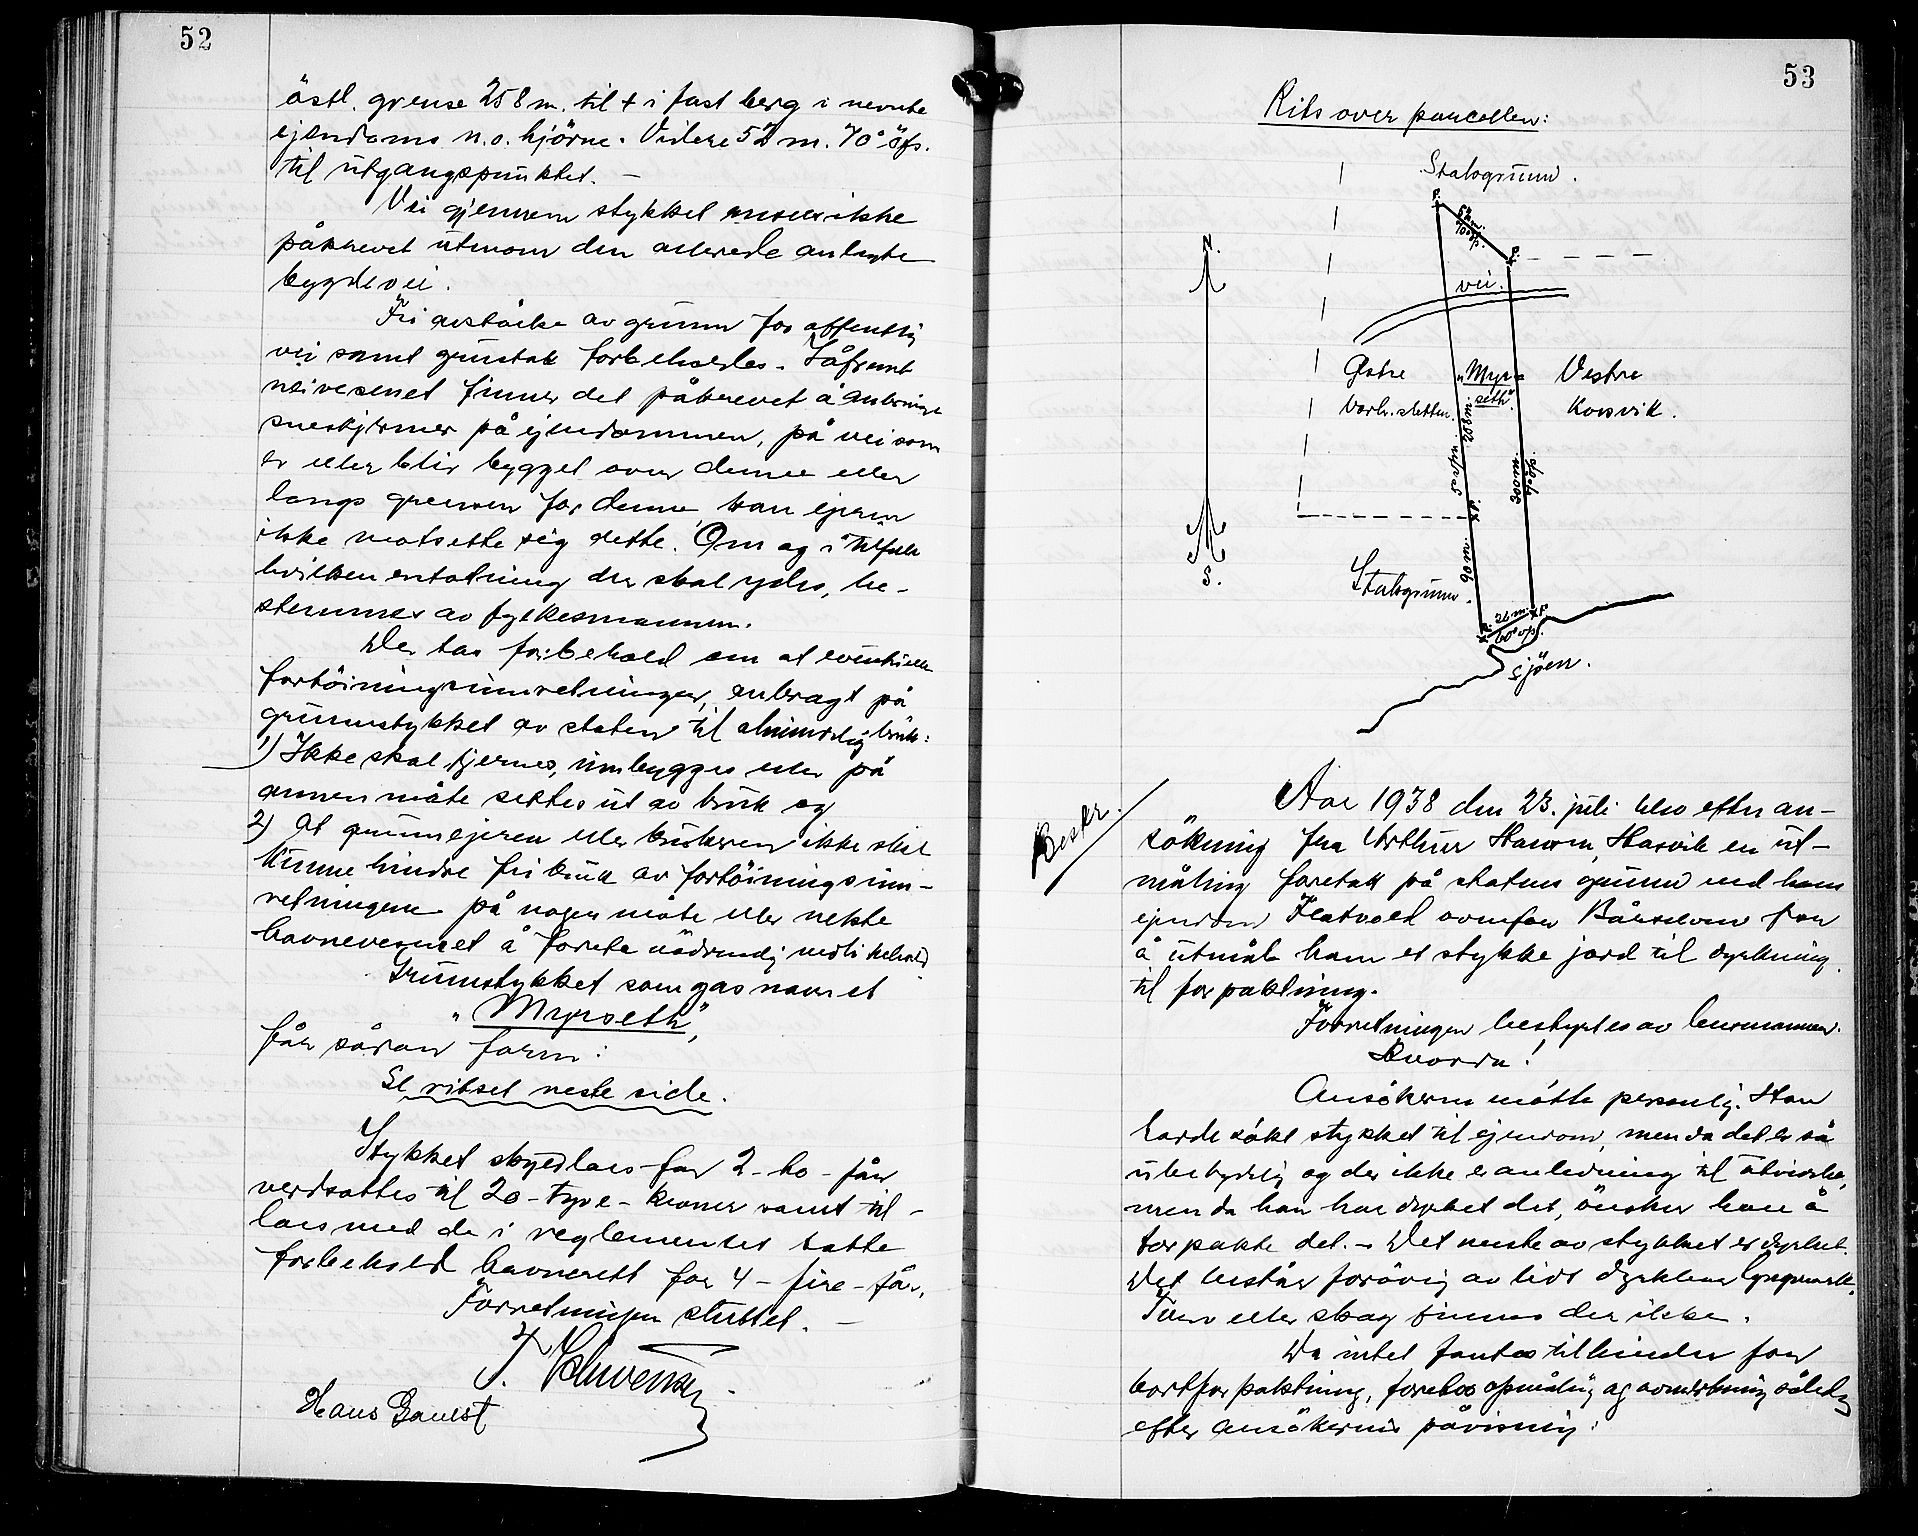 52
östl. grense 258 m. til + i fast berg i nevnte
ejendoms n.o. hjörne. Videre 52 m. 70° öfs.
til utgangspunktet. —
Vei gjennem stykket ansees ikke
påkrevet utenom den allerede anlagte
bygdevei.
Fri avståelse av grunn for offentlig
vei samt grustak forbeholdes. Såfremt
veivesenet finner det påkrevet å anbringe
sneskjermer på ejendommen, på vei som
er eller blir bygget over denne eller
langs grensen for denne kan ejeren
ikke motsette sig dette. Om og i tilfelle
hvilken erstatning der skal ydes, be-
stemmes av fylkesmannen.
Der tas forbehold om at eventuelle
fortöiningsinnretninger, anbragt på
grunnstykket av staten til almindelig bruk:
1) Ikke skal fjernes, innbygges eller på
annen måte settes ut av bruk og
2) At grunnejeren eller brukeren ikke skal
kunne hindre fri bruk av fortöiningsinn-
retningene på nogen måte eller nekte
havnevesenet å foreta nödvendig vedlikehold.
Grunnstykket som gas navnet
„Myrseth",
får sådan form:
Se ritset neste side.
Stykket skyldlaes for 2 - to - före
verdsattes til 20 - tyve - kroner samt til-
laes med de i reglementet tatte
forbehold havnerett for 4 - fire - får.
Forretningen sluttet. —
Hans Gamst
53
Rits over parcellen:
Statsgrunn.
52 m.
70° öfs.
N.
vei.
Östre
„Myr-
Vestre
seth".
Korsvik.
258 m.
300 m.
90 m.
S.
Statsgrunn.
26 m.
60°
Sjöen.
Beskr.
Aar 1938 den 23. juli blev efter an-
sökning fra Arthur Hansen, Hasvik en ut-
måling foretatt på statens grunn ved hans
ejendom Flatvold ovenfor for
å utmåle ham et stykke jord til dyrkning
til forpaktning.
Forretningen bestyrtes av lensmannen.
Ansökeren mötte personlig. Han
hadde sökt stykket til ejendom, men da det er så
ubetydelig og der ikke er anledning til utvidelse,
men da han har dyrket det, önsker han å
forpakte det. — Det meste av stykket er dyrket.
Det består forövrig av litt dyrkbar lyngmark.
Torv eller skog finnes der ikke.
Da intet fantes til hinder for
bortforpaktning, foretoes opmåling og avmerkning således
efter ansökerens påvisning: